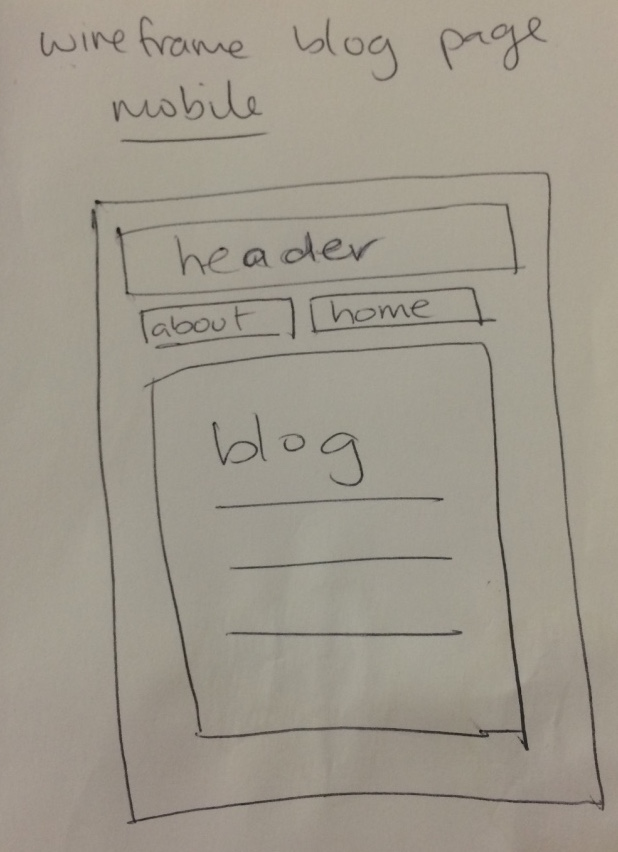 wireframe blog page
mobile
header
about home
blog